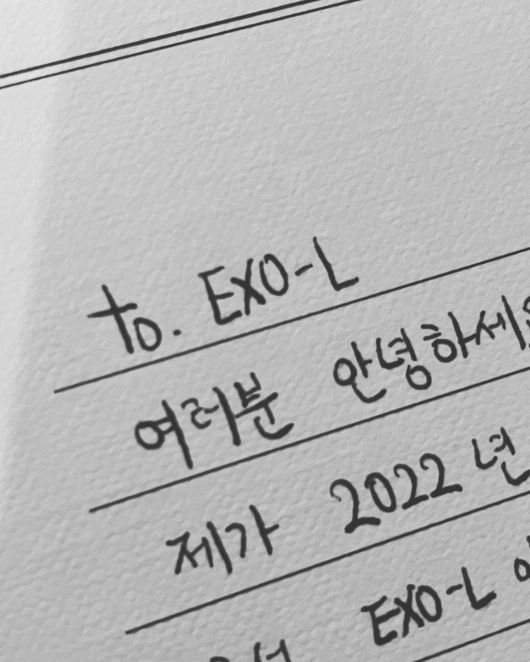 to. EXO-L
여러분 안녕하세
제가 2022 년
EXO-L